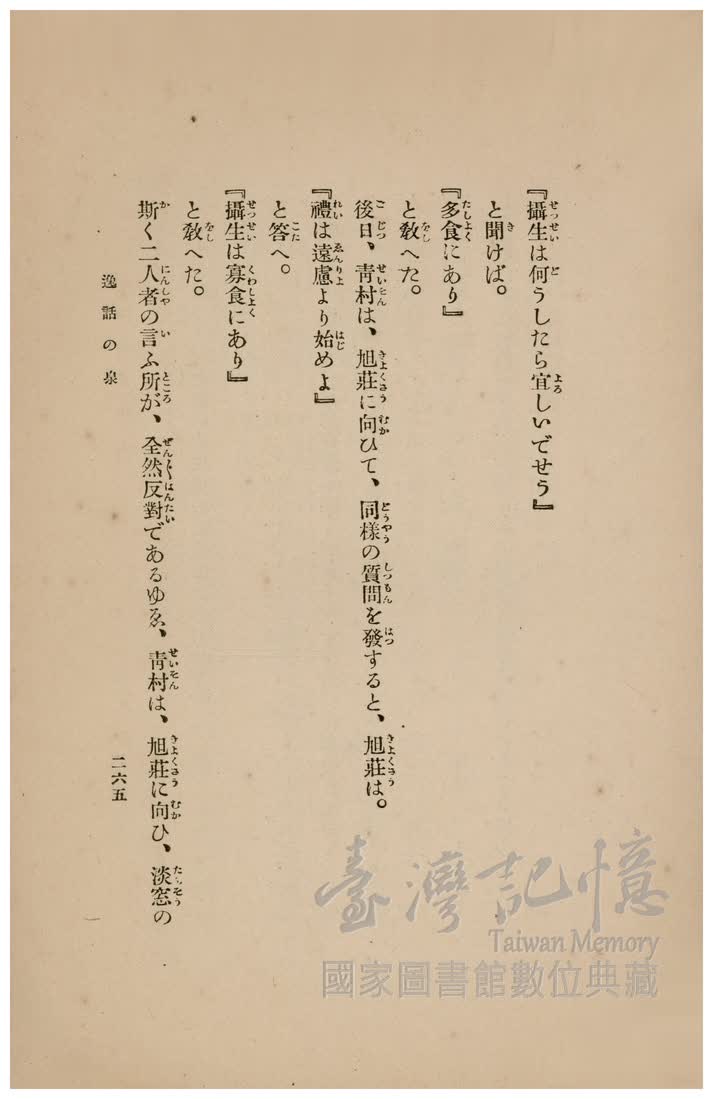 『攝生は何うしたら宜しいでせう』
と聞けば。
『多食にあり』
と敎へた。
後日、靑村は、旭莊に向ひて、同樣の質問を發すると、旭莊は。
『禮は遠慮より始めよ』
と答へ。
『攝生は寡食にあり』
と敎へた。
斯く二人者の言ふ所が、全然反對であるゆゑ、靑村は、旭莊に向ひ、淡窓の
逸話の泉
二六五
臺灣記憶
Taiwan Memory
國家圖書館數位典藏